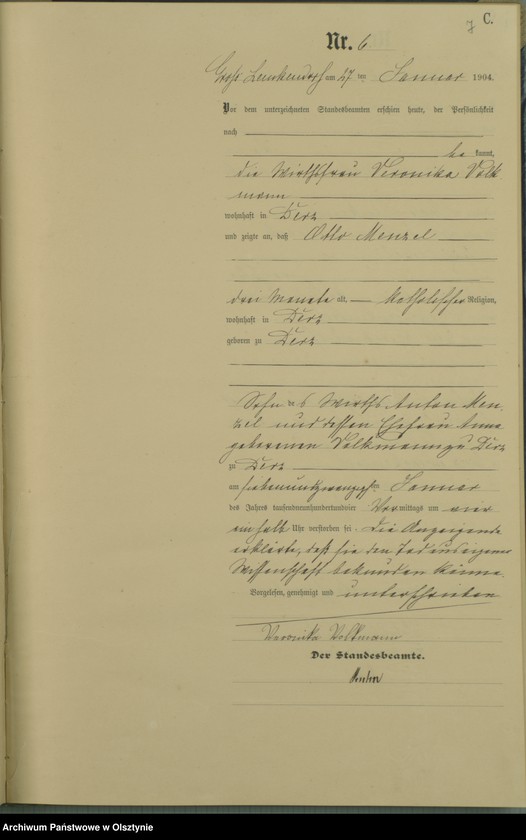 7 C.
Nr. 6
Groß Leschkendorf am 27 ten Januar 1904.
Vor dem unterzeichneten Standesbeamten erschien heute, der Persönlichkeit
nach
be kannt,
die Wirthsfrau Veronika Volk
mann
wohnhaft in Derz
und zeigte an, daß Otto Menzel
drei Monate alt, katholischer Religion,
wohnhaft in Derz
geboren zu Derz
Sohn des Wirths Anton Men
zel und dessen Ehefrau Anna
geborenen Volkmann zu Derz
zu Derz
am siebenundzwanzigsten Januar
des Jahres tausendneunhundertundvier Vormittags um vier
einhalb Uhr verstorben sei. Die Anzeigende
erklärte, daß sie den Tod aus eigener
Wissenschaft bekunden könne.
Vorgelesen, genehmigt und unterschrieben
Veronika Volkmann
Der Standesbeamte.
Archiwum Państwowe w Olsztynie